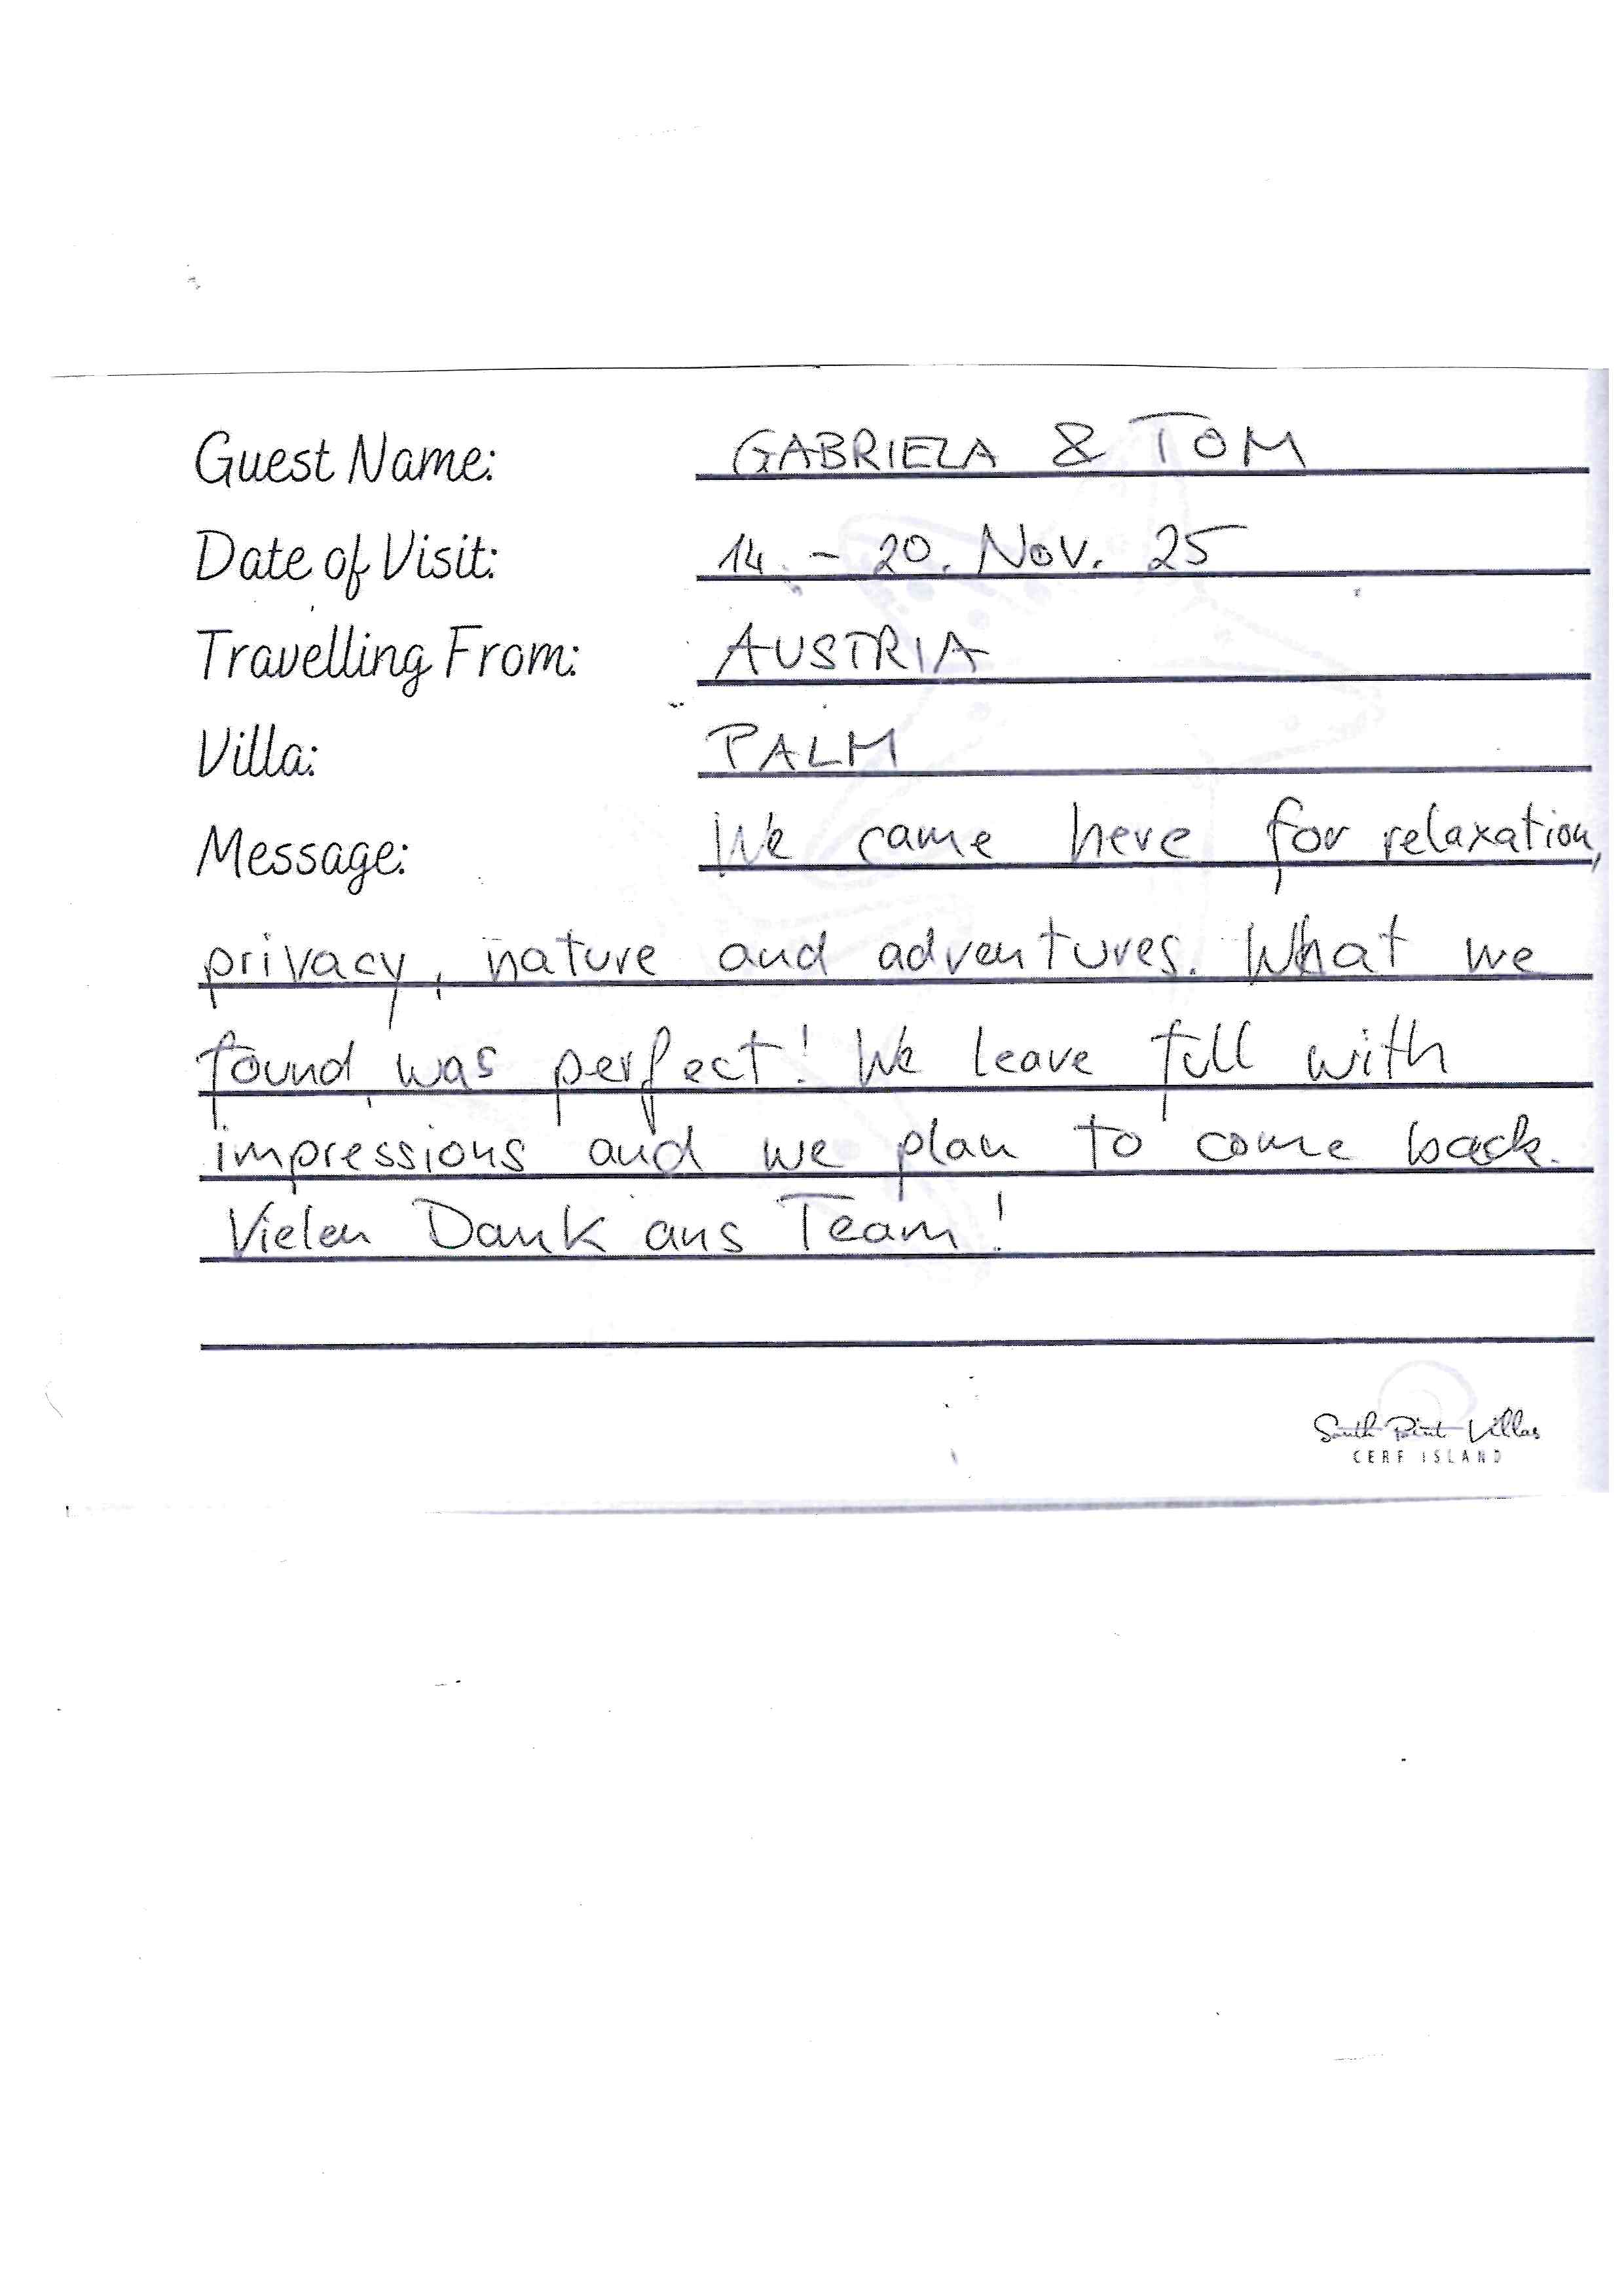 Guest Name: GABRIELA & TOM
Date of Visit: 14. - 20. Nov. 25
Travelling From: AUSTRIA
Villa: PALM
Message: We came here for relaxation,
privacy, nature and adventures. What we
found was perfect! We leave full with
impressions and we plan to come back.
Vielen Dank ans Team!
South Point Villas
CERF ISLAND